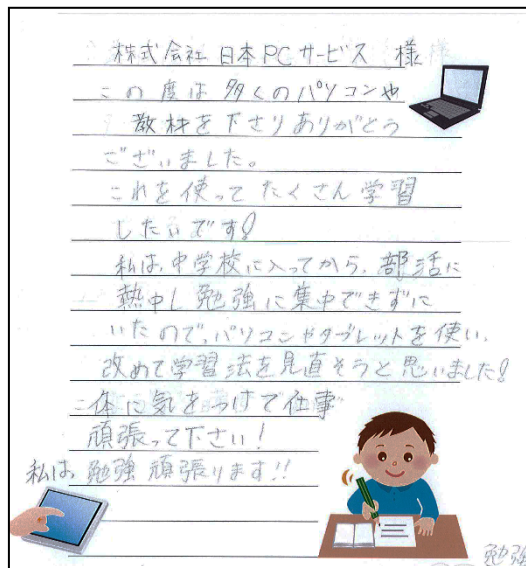 株式会社 日本PCサービス 様
この度は 多くのパソコンや
教材を下さりありがとう
ございました。
これを使って たくさん 学習
したいです!
私は、中学校に入ってから、部活に
熱中し勉強に集中できずに
いたので、パソコンやタブレットを使い、
改めて学習法を見直そうと思いました!
体に気をつけて仕事
頑張って下さい!
私は、勉強頑張ります!!
勉強